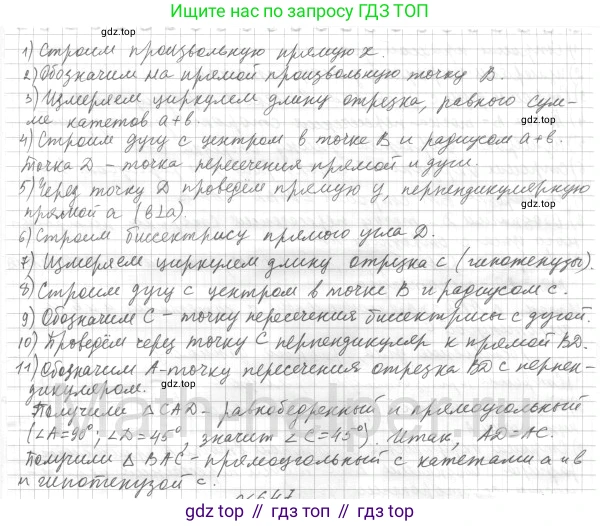 Ищите нас по запросу ГДЗ ТОП
gdz.top
1) Строим произвольную прямую x.
2) Обозначим на прямой произвольную точку B.
3) Измеряем циркулем длину отрезка, равного сум-
ме катетов a+b.
4) Строим дугу с центром в точке B и радиусом a+b.
Точка D – точка пересечения прямой и дуги.
5) Через точку D проведём прямую y, перпендикулярную
прямой a (b⊥a).
6) Строим биссектрису прямого угла D.
7) Измеряем циркулем длину отрезка c (гипотенузы).
8) Строим дугу с центром в точке B и радиусом c.
9) Обозначим C – точку пересечения биссектрисы с дугой.
10) Проведём через точку C перпендикуляр к прямой BD.
11) Обозначим A-точку пересечения отрезка BD с перпен-
дикуляром.
Получили △CAD – равнобедренный и прямоугольный
(∠A=90°, ∠D=45°, значит ∠C=45°). Итак, AD=AC.
Получили △BAC – прямоугольный с катетами a и b
и гипотенузой c.
gdz.top
gdz.top